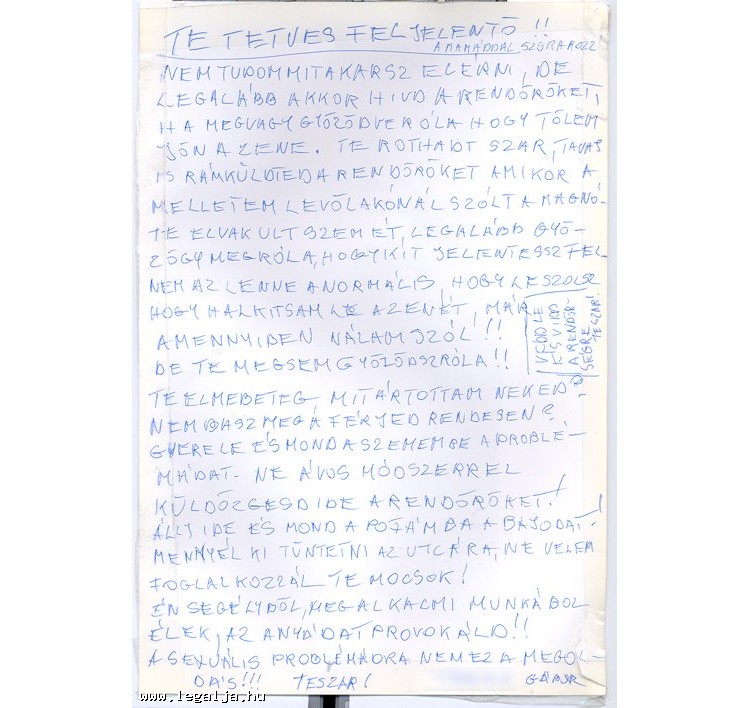 TE TETVES FELJELENTŐ !!
A MAMÁDDAL SZÓRAKOZZ
NEM TUDOM MIT AKARSZ ELÉRNI, DE
LEGALÁBB AKKOR HIVD A RENDŐRÖKET,
HA MEGVAGY GYŐZŐDVE RÓLA HOGY TŐLEM
JÖN A ZENE. TE ROTHADT SZAR, TAVAJ
IS RÁMKÜLDTED A RENDŐRÖKET AMIKOR A
MELLETEM LEVŐ LAKÓNÁL SZÓLT A MAGNÓ-
TE ELVAKULT SZEMÉT, LEGALÁBB GYŐ-
ZŐGY MEG RÓLA, HOGY KIT JELENTESSZ FEL
NEM AZ LENNE A NORMÁLIS, HOGY LESZOLSZ
HOGY HALKITSAM LE A ZENÉT, MÁR
AMENNYIBEN NÁLAM SZÓL !!!
DE TE MEGSEM GYŐZŐDSZ RÓLA !!
VEDD LE
ÉS VIDD
A RENDŐR-
SÉGRE
TE SZAR!
TE ELMEBETEG MIT ÁRTOTTAM NEKED?
NEM BASZ MEG A FÉRJED RENDESEN?
GYERE LE ÉS MOND A SZEMEMBE A PROBLÉ-
MÁDAT- NE ÁVOS MÓDSZERREL
KÜLDÖZGESD IDE A RENDŐRÖKET!
ÁLLJ IDE ÉS MOND A POFÁMBA A BAJODAT!
MENNYÉL KI TÜNTETNI AZ UTCÁRA, NE VELEM
FOGLALKOZZÁL TE MOCSOK!
ÉN SEGÉLYBŐL, MEG ALKALMI MUNKÁBOL
ÉLEK, AZ ANYÁDAT PROVOKÁLD!!
A SEXUÁLIS PROBLÉMÁDRA NEM EZ A MEGOL-
DÁS!!! TE SZAR! GÁBOR
www.legalja.hu